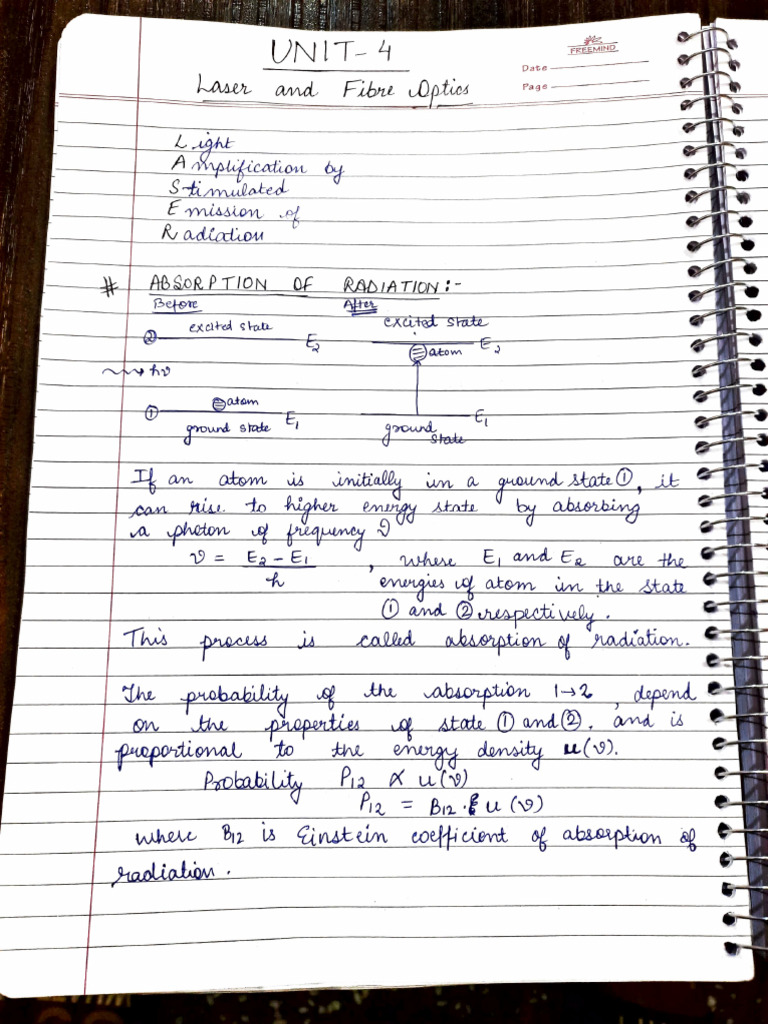 UNIT-4
FREEMIND
Date
Page
Laser and Fibre Optics
Light
Amplification by
Stimulated
Emission of
Radiation
# ABSORPTION OF RADIATION:-
Before After
excited state excited state
② E₂ E₂
atom
hν
atom
① E₁ E₁
ground state ground state
If an atom is initially in a ground state ①, it
can rise to higher energy state by absorbing
a photon of frequency ν
ν = E₂ – E₁ / h , where E₁ and E₂ are the
energies of atom in the state
① and ② respectively.
This process is called absorption of radiation.
The probability of the absorption 1→2, depend
on the properties of state ① and ②. and is
proportional to the energy density u(ν).
Probability P₁₂ ∝ u(ν)
P₁₂ = B₁₂ . u(ν)
where B₁₂ is Einstein coefficient of absorption of
radiation.